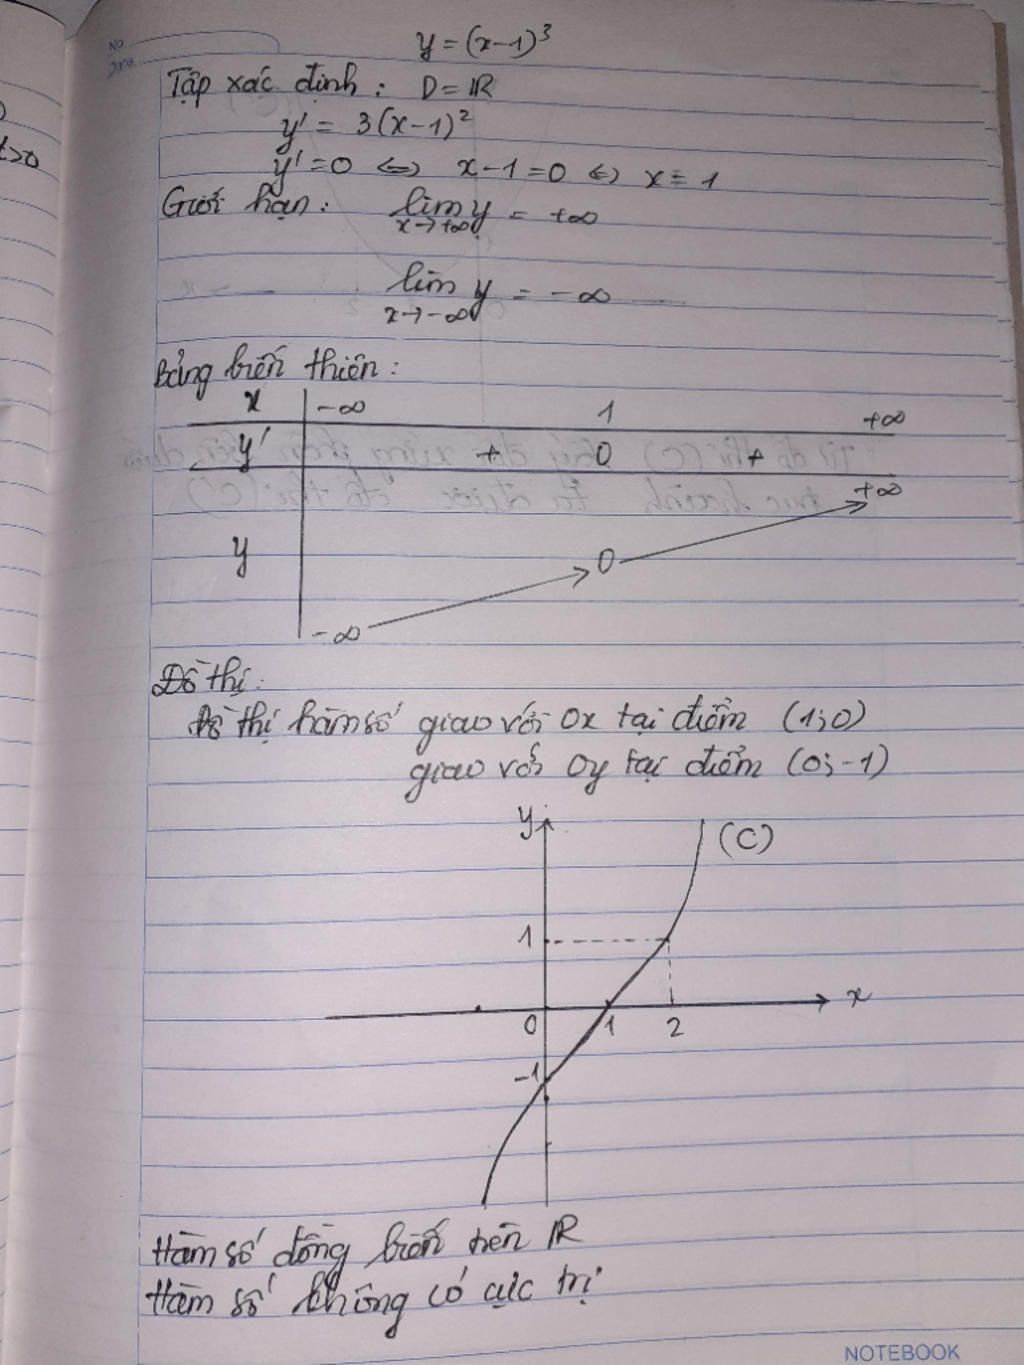 No
Date
y = (x-1)³
Tập xác định : D = ℝ
y' = 3(x-1)²
y' = 0 ⇔ x-1 = 0 ⇔ x = 1
Giới hạn : lim y = +∞
x→+∞
lim y = -∞
x→-∞
Bảng biến thiên :
x -∞ 1 +∞
y' + 0 +
+∞
y 0
-∞
Đồ thị :
Đồ thị hàm số giao với Ox tại điểm (1;0)
giao với Oy tại điểm (0;-1)
y
(C)
1
x
0 1 2
-1
Hàm số đồng biến trên ℝ
Hàm số không có cực trị
NOTEBOOK
t>0